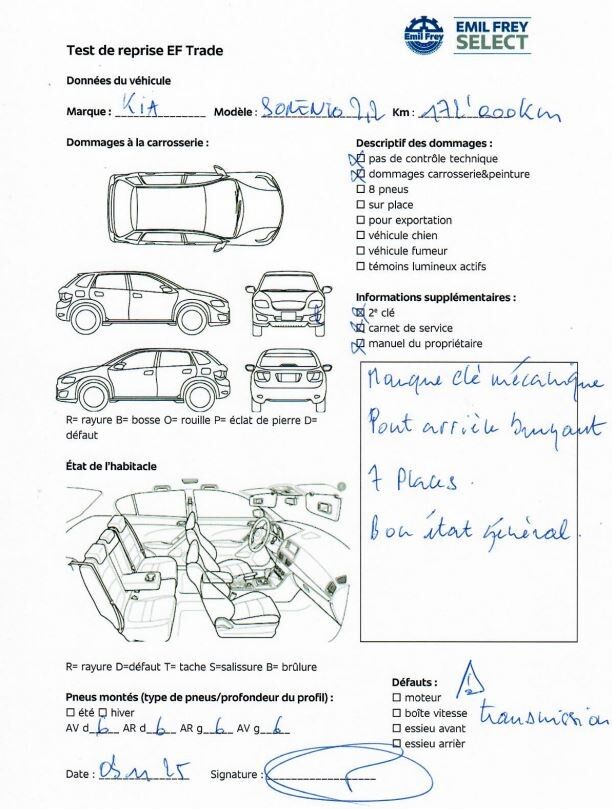 Emil Frey
EMIL FREY
SELECT
Test de reprise EF Trade
Données du véhicule
Marque : KIA Modèle : SORENTO 2,2 Km : 172'000Km
Dommages à la carrosserie :
Descriptif des dommages :
pas de contrôle technique
dommages carrosserie&peinture
8 pneus
sur place
pour exportation
véhicule chien
véhicule fumeur
témoins lumineux actifs
Informations supplémentaires :
2e clé
carnet de service
manuel du propriétaire
Manque clé mécanique
Pont arrière bruyant
7 Places.
Bon état général.
R= rayure B= bosse O= rouille P= éclat de pierre D=
défaut
État de l'habitacle
R= rayure D=défaut T= tache S=salissure B= brûlure
Pneus montés (type de pneus/profondeur du profil) :
été hiver
AV d 6 AR d 6 AR g 6 AV g 6
Défauts :
moteur
boîte vitesse
essieu avant
essieu arrièr
transmission
Date : 11 25 Signature :